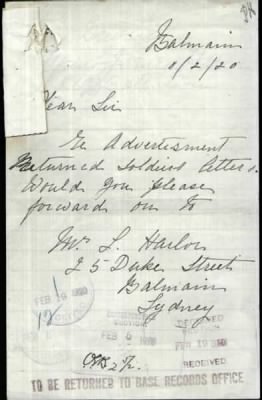 Balmain
10/2/20
Dear Sir
Re Advertesment
Returned Soldiers letters.
Would you please
forward on to
Mr L. Harlow
25 Duke Street
Balmain
Sydney
FEB 19 1920
FEB 1920
FEB 19 1920
RECEIVED
TO BE RETURNED TO BASE RECORDS OFFICE